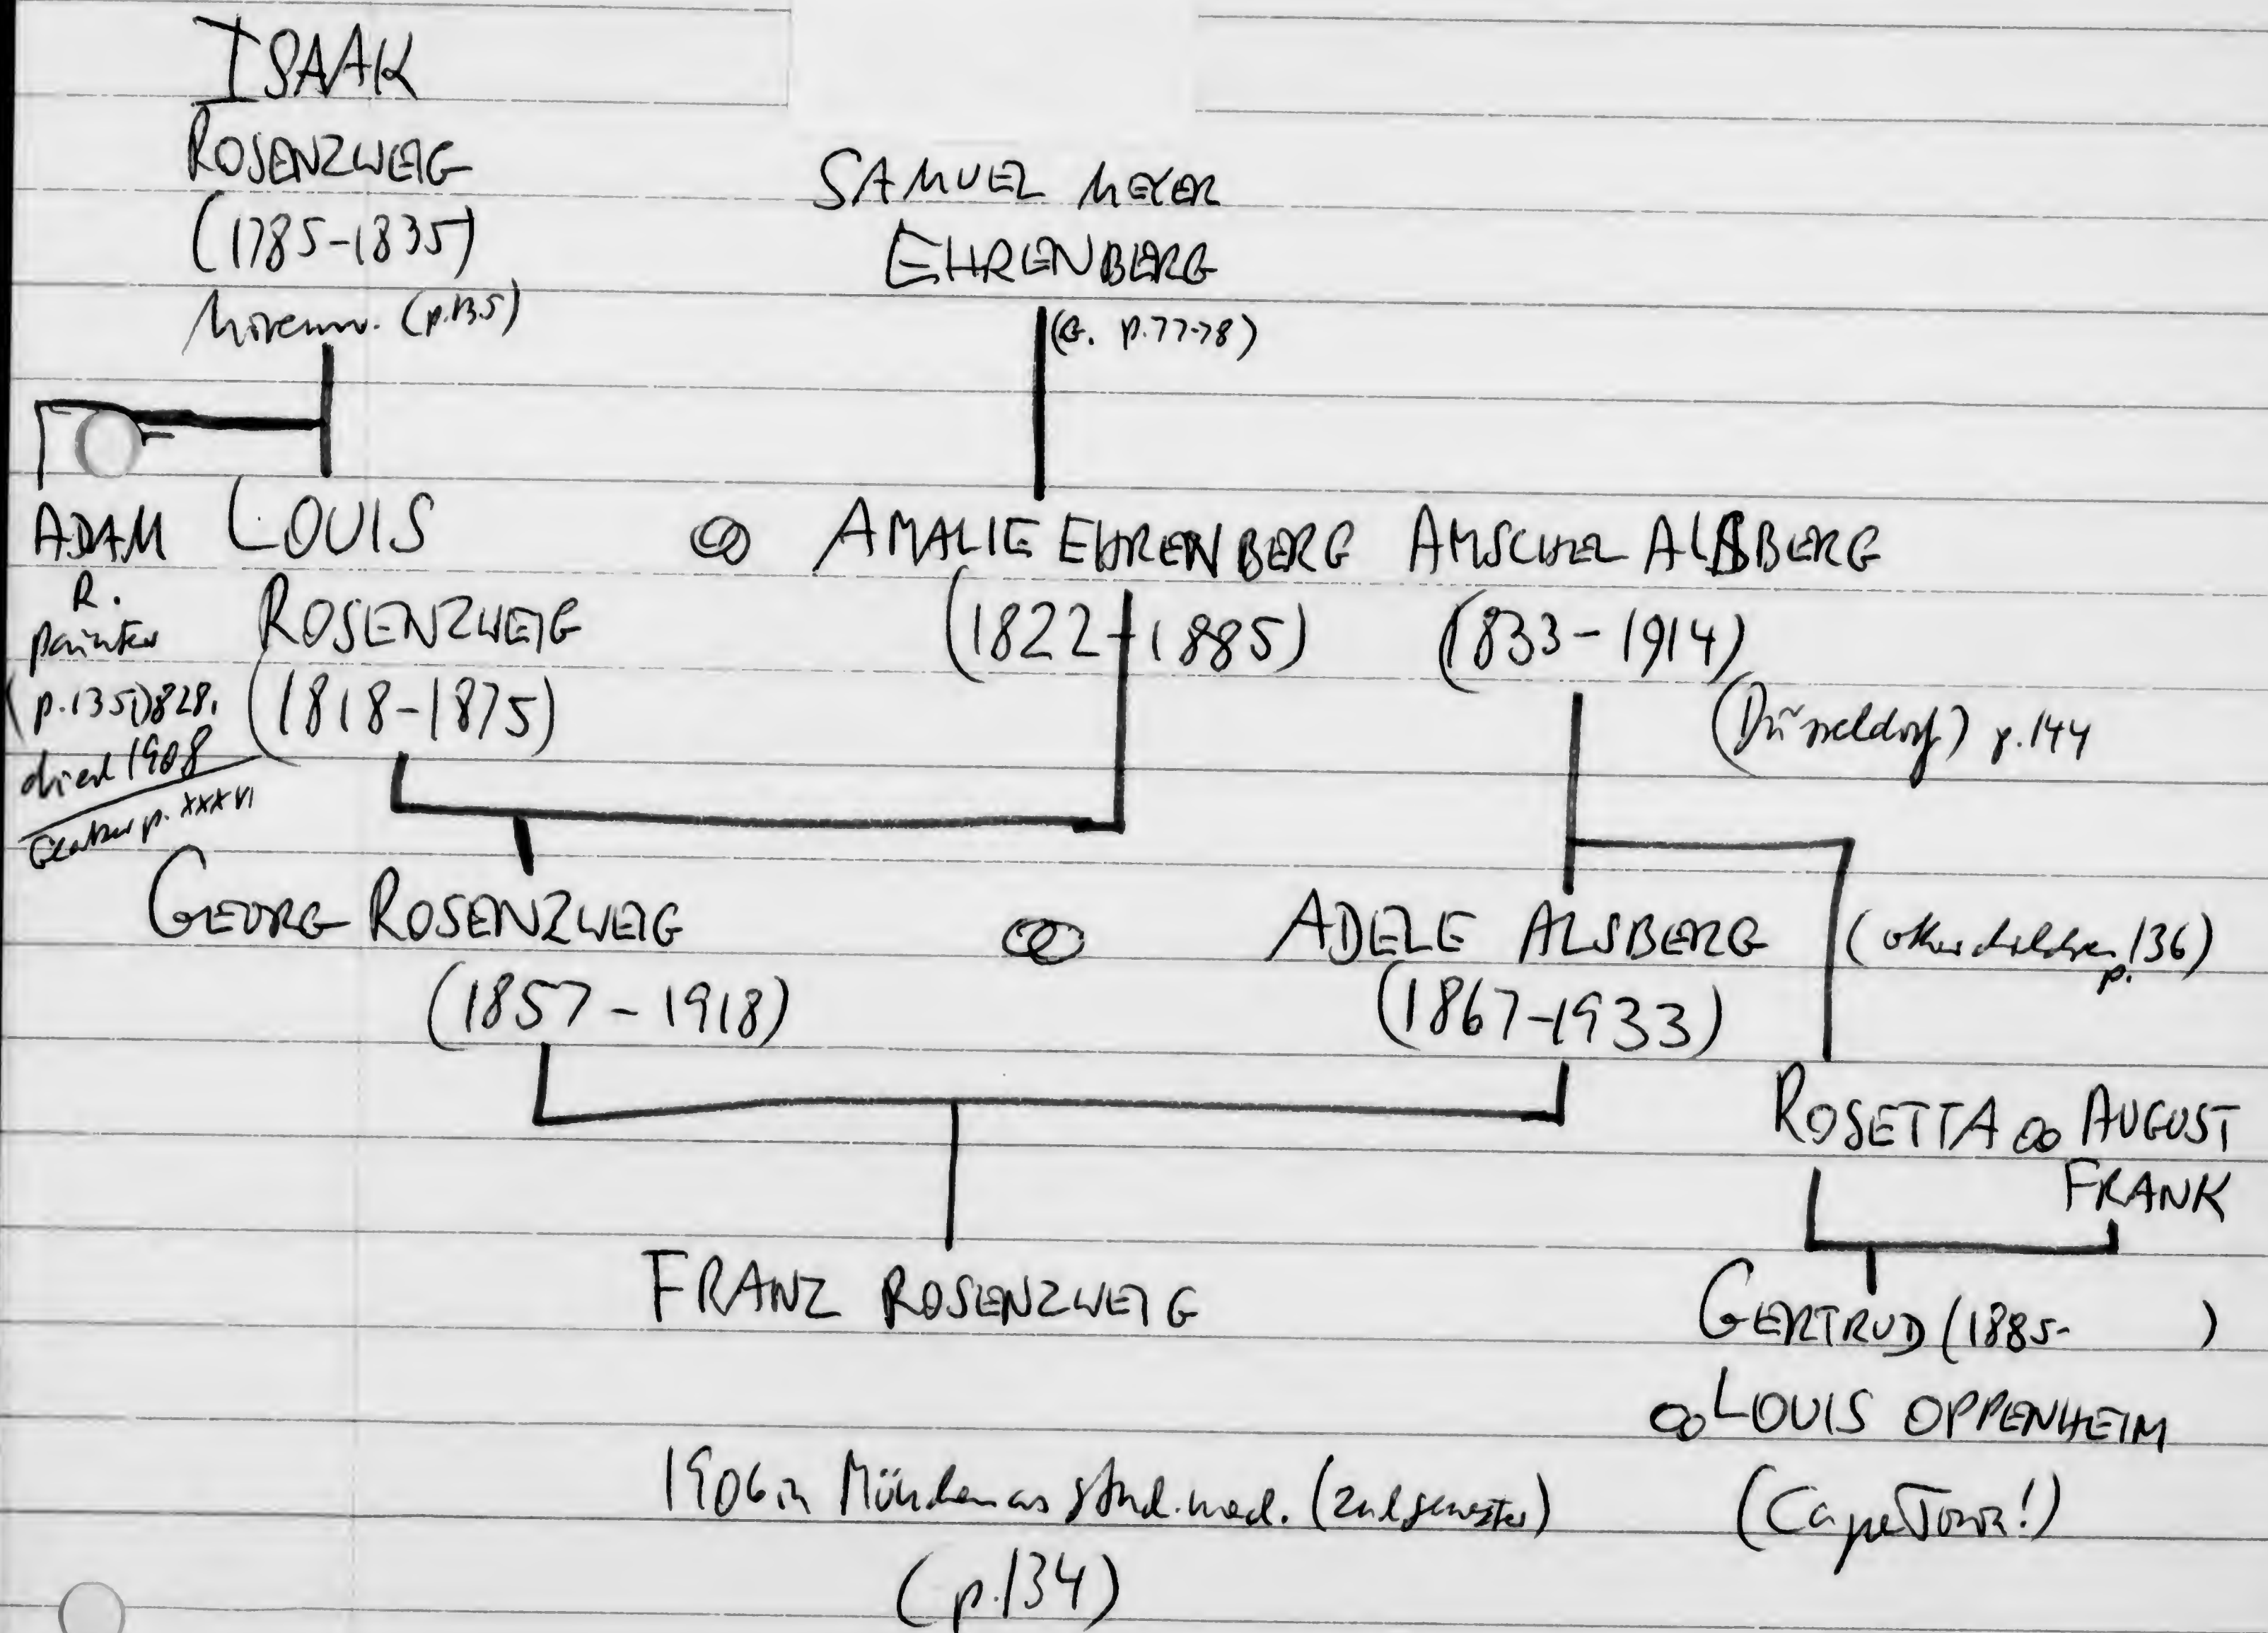 ISAAK
ROSENZWEIG
(1785-1835)
(p.135)
SAMUEL MEYER
EHRENBERG
(G. p.77-78)
ADAM
R.
painter
(p.135) 1828.
died 1908
p. XXXVI
LOUIS
ROSENZWEIG
(1818-1875)
AMALIE EHRENBERG
(1822-1885)
AMSCHEL ALSBERG
(1833-1914)
(Düsseldorf) p.144
GEORG ROSENZWEIG
(1857-1918)
ADELE ALSBERG
(1867-1933)
(other children p. 136)
ROSETTA ∞ AUGUST
FRANK
FRANZ ROSENZWEIG
GERTRUD (1885- )
∞ LOUIS OPPENHEIM
(Cape Town!)
1906 in München as stud. med. (2nd semester)
(p.134)